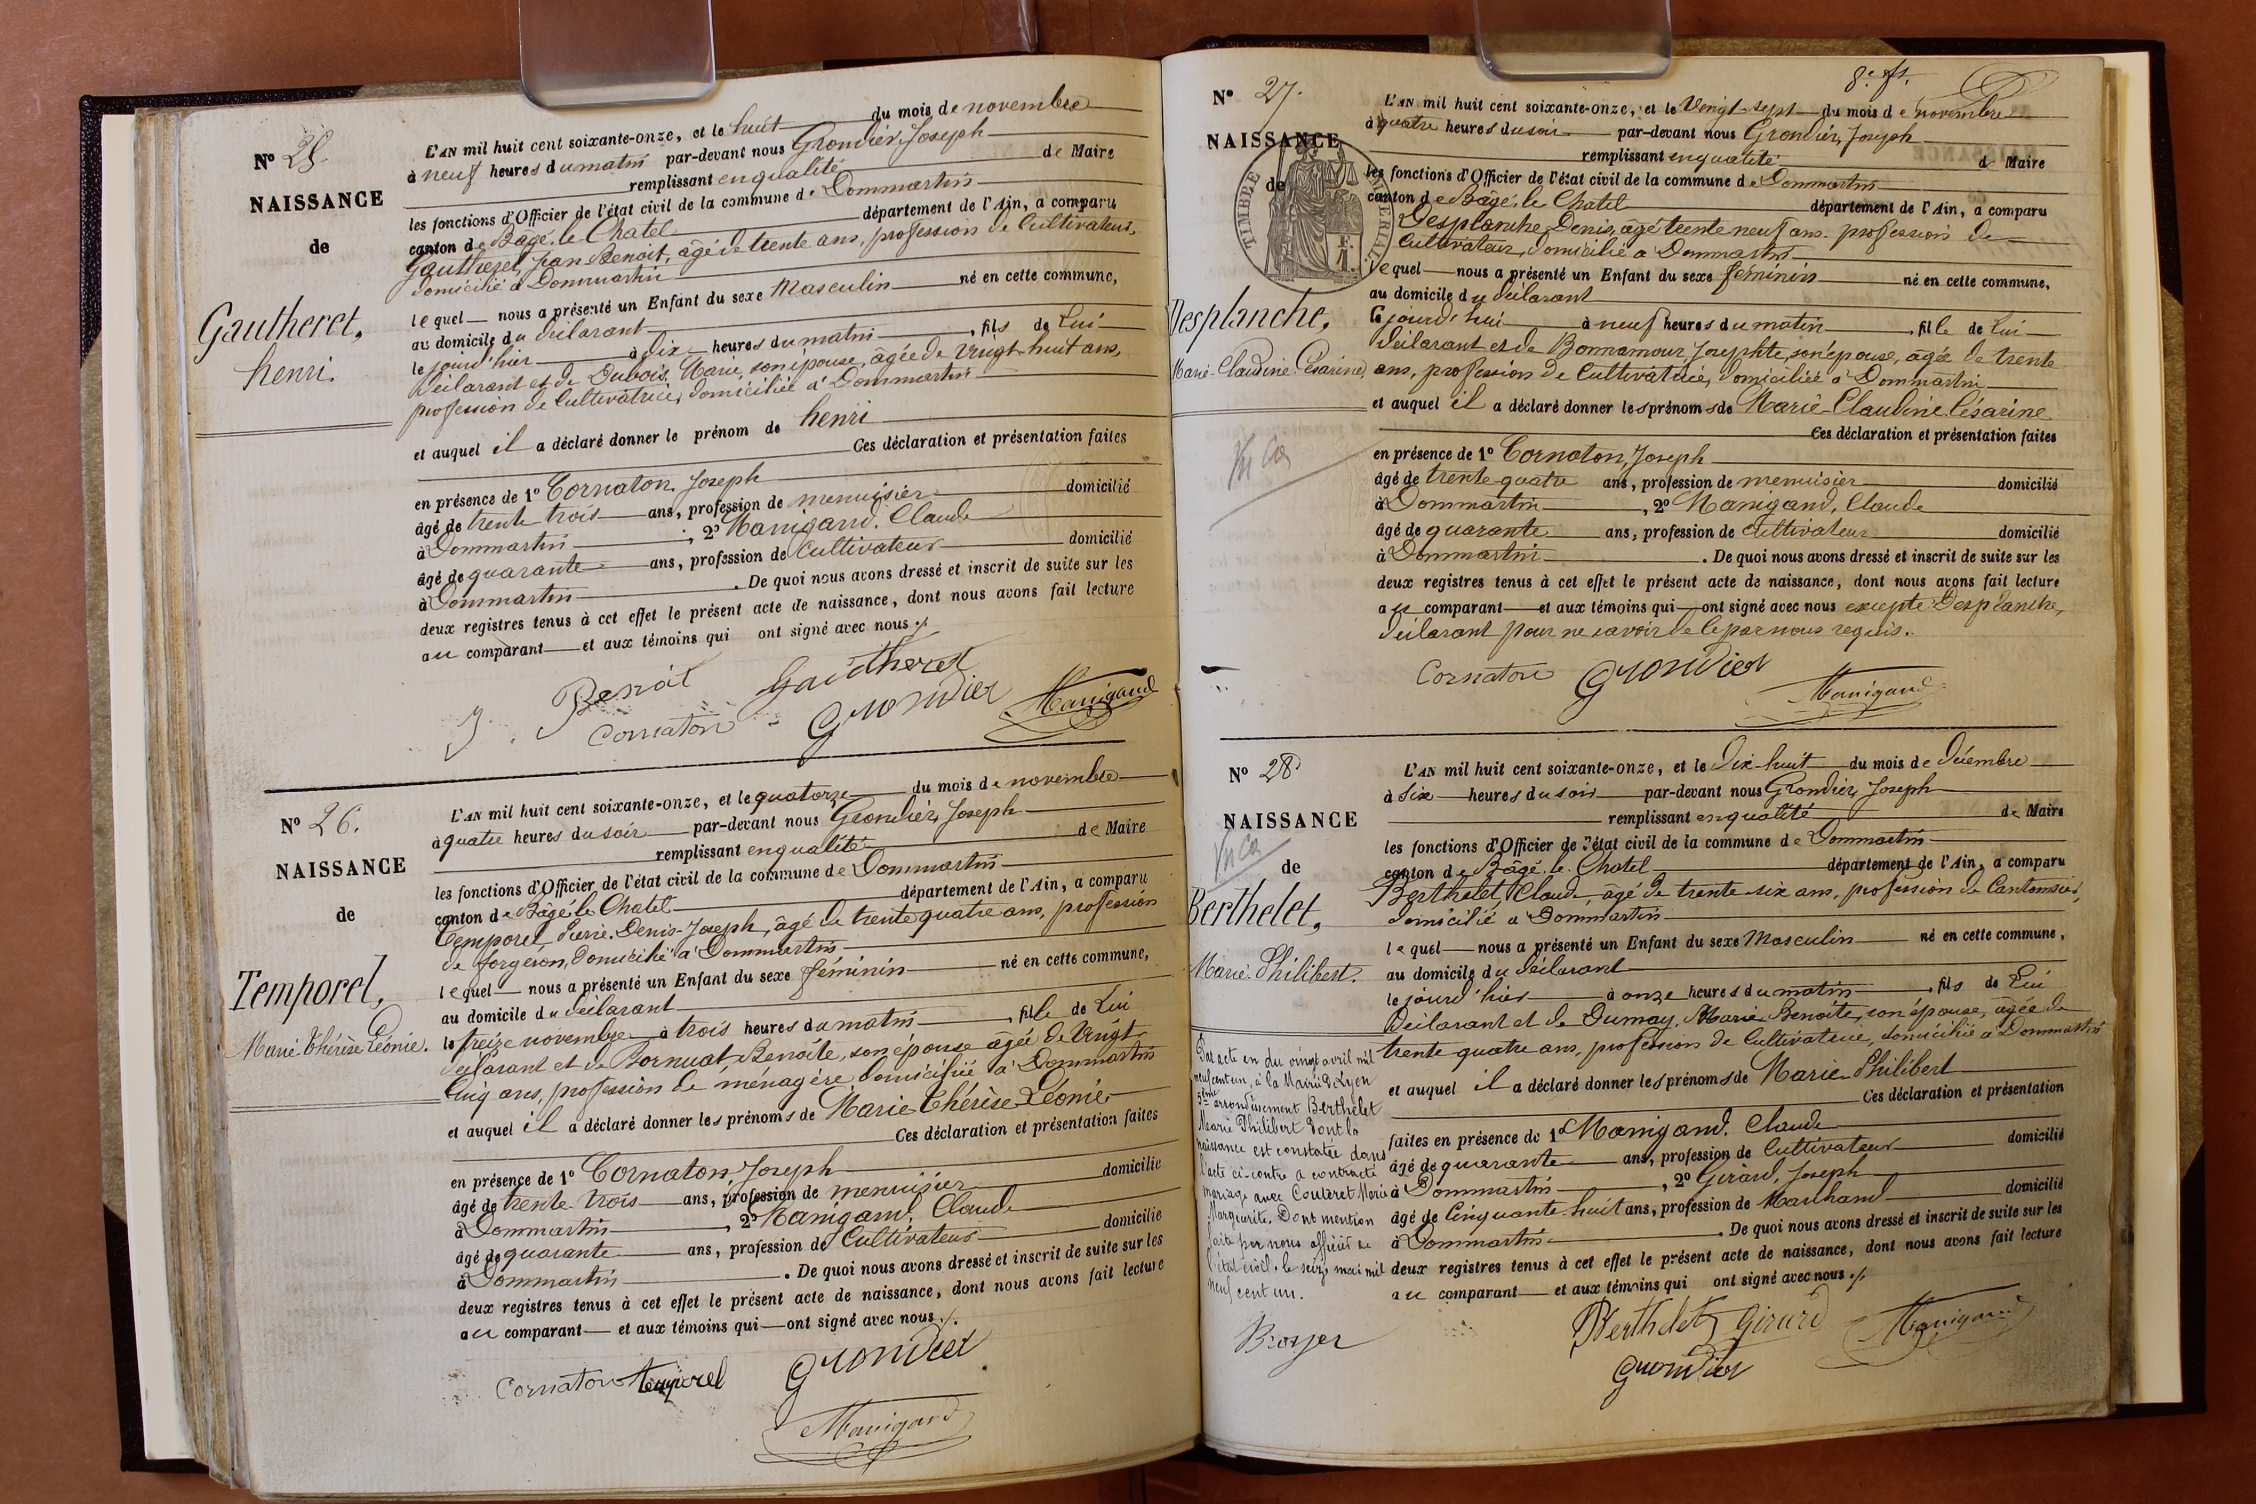 Nº 25.
NAISSANCE
de
Gautheret,
henri.
L'AN mil huit cent soixante-onze, et le huit du mois de novembre
à neuf heures du matin par-devant nous Grondier, Joseph
remplissant en qualité de Maire
les fonctions d'Officier de l'état civil de la commune de Dommartin
canton de Bâgé-le-Chatel département de l'Ain, a comparu
Gautheret, Jean Benoit, âgé de trente ans, profession de Cultivateur,
domicilié à Dommartin
lequel nous a présenté un Enfant du sexe Masculin né en cette commune,
au domicile du déclarant
le jourd'hier à dix heures du matin, fils de Lui
déclarant et de Dubois, Marie, son épouse, âgée de vingt-huit ans,
profession de Cultivatrice, domiciliée à Dommartin
et auquel il a déclaré donner le prénom de henri
Ces déclaration et présentation faites
en présence de 1º Cornaton, Joseph
âgé de trente trois ans, profession de menuisier domicilié
à Dommartin ; 2º Manigand, Claude
âgé de quarante ans, profession de Cultivateur domicilié
à Dommartin. De quoi nous avons dressé et inscrit de suite sur les
deux registres tenus à cet effet le présent acte de naissance, dont nous avons fait lecture
au comparant et aux témoins qui ont signé avec nous ./.
J. Benoit Gautheret
Cornaton Grondier Manigand
Nº 26.
NAISSANCE
de
Temporel,
Marie Thérèse Léonie.
L'AN mil huit cent soixante-onze, et le quatorze du mois de novembre
à quatre heures du soir par-devant nous Grondier, Joseph
remplissant en qualité de Maire
les fonctions d'Officier de l'état civil de la commune de Dommartin
canton de Bâgé-le-Chatel département de l'Ain, a comparu
Temporel, Pierre Denis-Joseph, âgé de trente quatre ans, profession
de forgeron, domicilié à Dommartin
lequel nous a présenté un Enfant du sexe féminin né en cette commune,
au domicile du déclarant
le treize novembre à trois heures du matin, fille de Lui
déclarant et de Bornuat, Benoîte, son épouse âgée de Vingt
Cinq ans, profession de ménagère domiciliée à Dommartin
et auquel il a déclaré donner les prénoms de Marie-Thérèse Léonie
Ces déclaration et présentation faites
en présence de 1º Cornaton, Joseph
âgé de trente trois ans, profession de menuisier domicilié
à Dommartin, 2º Manigand, Claude
âgé de quarante ans, profession de Cultivateur domicilié
à Dommartin. De quoi nous avons dressé et inscrit de suite sur les
deux registres tenus à cet effet le présent acte de naissance, dont nous avons fait lecture
au comparant et aux témoins qui ont signé avec nous ./.
Cornaton temporel Grondier
Manigand
8e ft.
Nº 27.
NAISSANCE
de
TIMBRE IMPERIAL
Desplanche,
Marie-Claudine-Césarine,
L'AN mil huit cent soixante-onze, et le Vingt-sept du mois de novembre
à quatre heures du soir par-devant nous Grondier, Joseph
remplissant en qualité de Maire
les fonctions d'Officier de l'état civil de la commune de Dommartin
canton de Bâgé-le-Chatel département de l'Ain, a comparu
Desplanche, Denis, âgé trente neuf ans, profession de
Cultivateur, domicilié à Dommartin
lequel nous a présenté un Enfant du sexe féminin né en cette commune,
au domicile du déclarant
Ce jourd'hui à neuf heures du matin, fille de Lui
déclarant et de Bonnamour, Josephte, son épouse, âgée de trente
ans, profession de Cultivatrice, domiciliée à Dommartin
et auquel il a déclaré donner les prénoms de Marie-Claudine Césarine
Ces déclaration et présentation faites
en présence de 1º Cornaton, Joseph
âgé de trente-quatre ans, profession de menuisier domicilié
à Dommartin, 2º Manigand, Claude
âgé de quarante ans, profession de cultivateur domicilié
à Dommartin. De quoi nous avons dressé et inscrit de suite sur les
deux registres tenus à cet effet le présent acte de naissance, dont nous avons fait lecture
au comparant et aux témoins qui ont signé avec nous excepté Desplanche,
déclarant pour ne savoir de ce par nous requis.
Cornaton Grondier
Manigand
Nº 28
NAISSANCE
de
Berthelet,
Marie-Philibert.
L'AN mil huit cent soixante-onze, et le Dix-huit du mois de Décembre
à Six heures du soir par-devant nous Grondier, Joseph
remplissant en qualité de Maire
les fonctions d'Officier de l'état civil de la commune de Dommartin
canton de Bâgé-le-Chatel département de l'Ain, a comparu
Berthelet, Claude, âgé de trente-six ans, profession de Cantonnier,
domicilié à Dommartin
lequel nous a présenté un Enfant du sexe Masculin né en cette commune,
au domicile du déclarant
le jourd'hier à onze heures du matin, fils de Lui
Déclarant et de Dumay, Marie Benoîte, son épouse, âgée de
trente quatre ans, profession de Cultivatrice, domiciliée à Dommartin
et auquel il a déclaré donner les prénoms de Marie-Philibert
Ces déclaration et présentation
faites en présence de 1º Manigand, Claude
âgé de quarante ans, profession de Cultivateur domicilié
à Dommartin, 2º Girard, Joseph
âgé de Cinquante-huit ans, profession de Marchand domicilié
à Dommartin. De quoi nous avons dressé et inscrit de suite sur les
deux registres tenus à cet effet le présent acte de naissance, dont nous avons fait lecture
au comparant et aux témoins qui ont signé avec nous ./.
Berthelet Girard Manigand
Grondier
Par acte en du vingt avril mil
neuf cent un, à la Mairie de Lyon
5ème arrondissement Berthelet
Marie Philibert dont la
naissance est constatée dans
l'acte ci-contre a contracté
mariage avec Couteret Marie
Marguerite. Dont mention
faite par nous officier de
l'état civil, le seize mai mil
neuf cent un.
Broyer